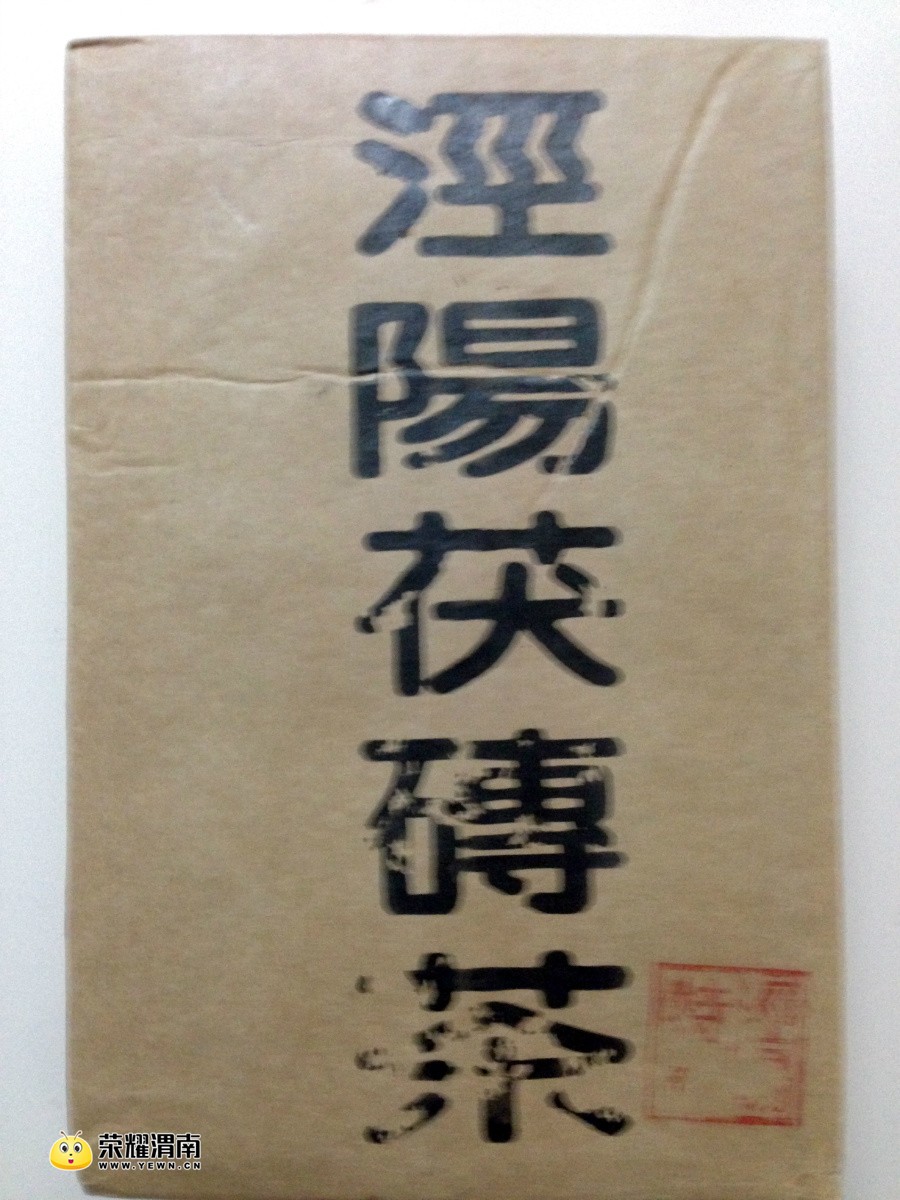 涇陽茯磚茶
荣耀渭南
WWW.YEWN.CN